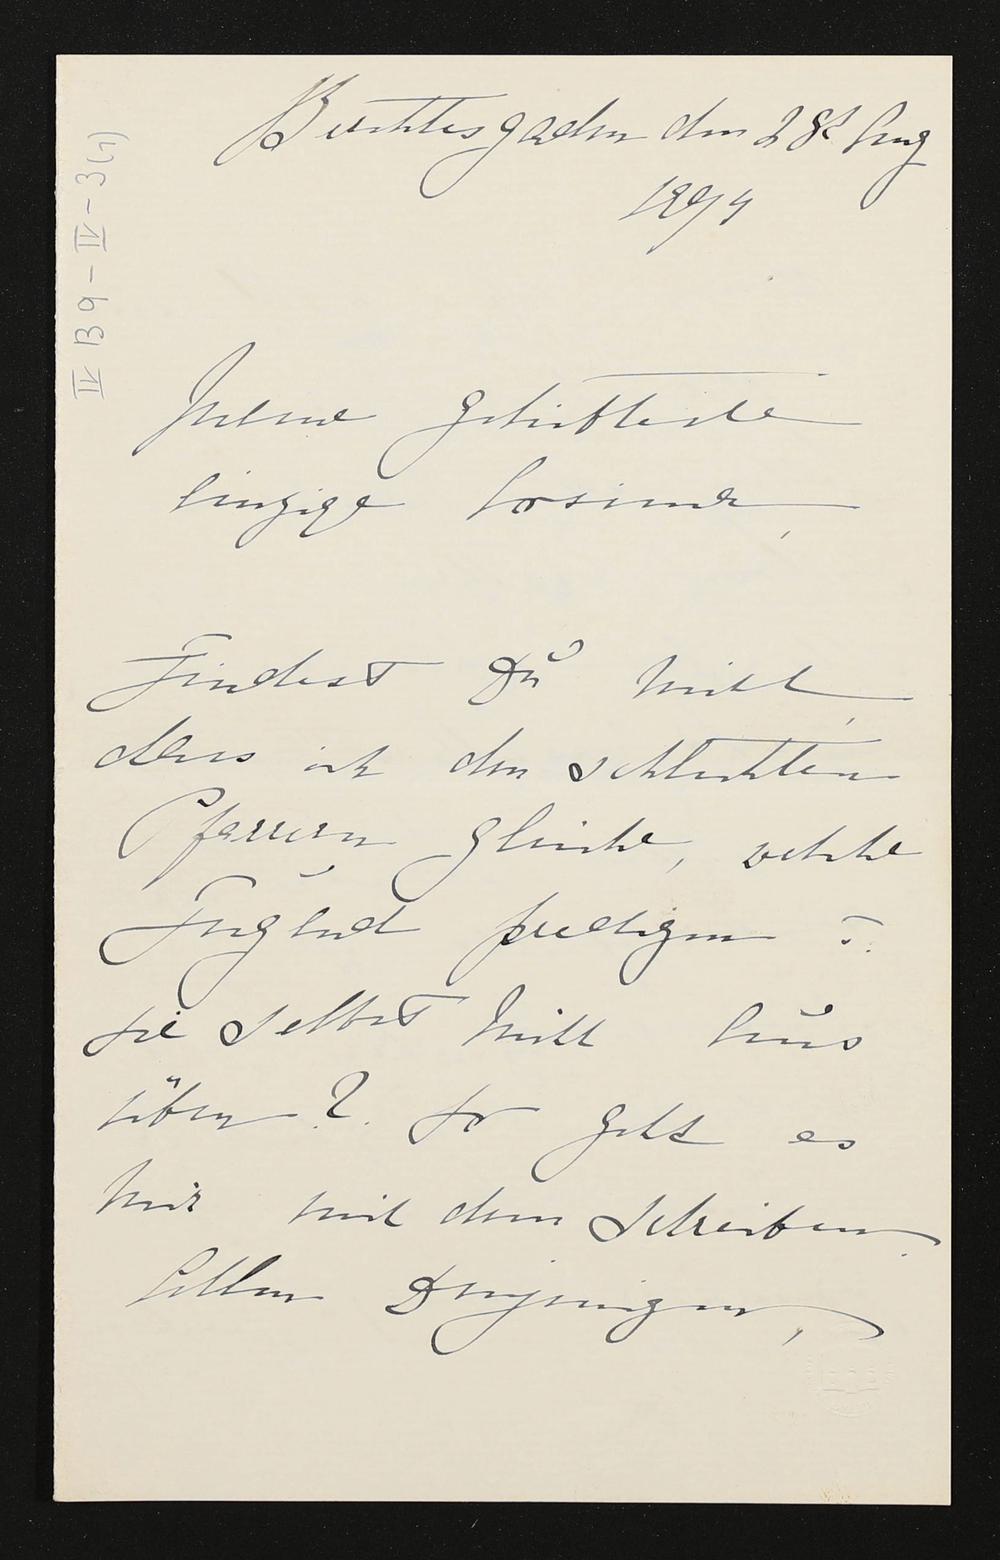 IV B 9 - IV - 3 (1)
Berchtesgaden den 28t Aug
1894
Meine geliebteste
einzige Cosima,
Findest Du nicht,
dass ich den schlechten
Pfarrern gleiche, welche
Tugend predigen u.
sie selbst nicht aus
üben? So geht es
mir mit dem Schreiben.
Allen Denjenigen,